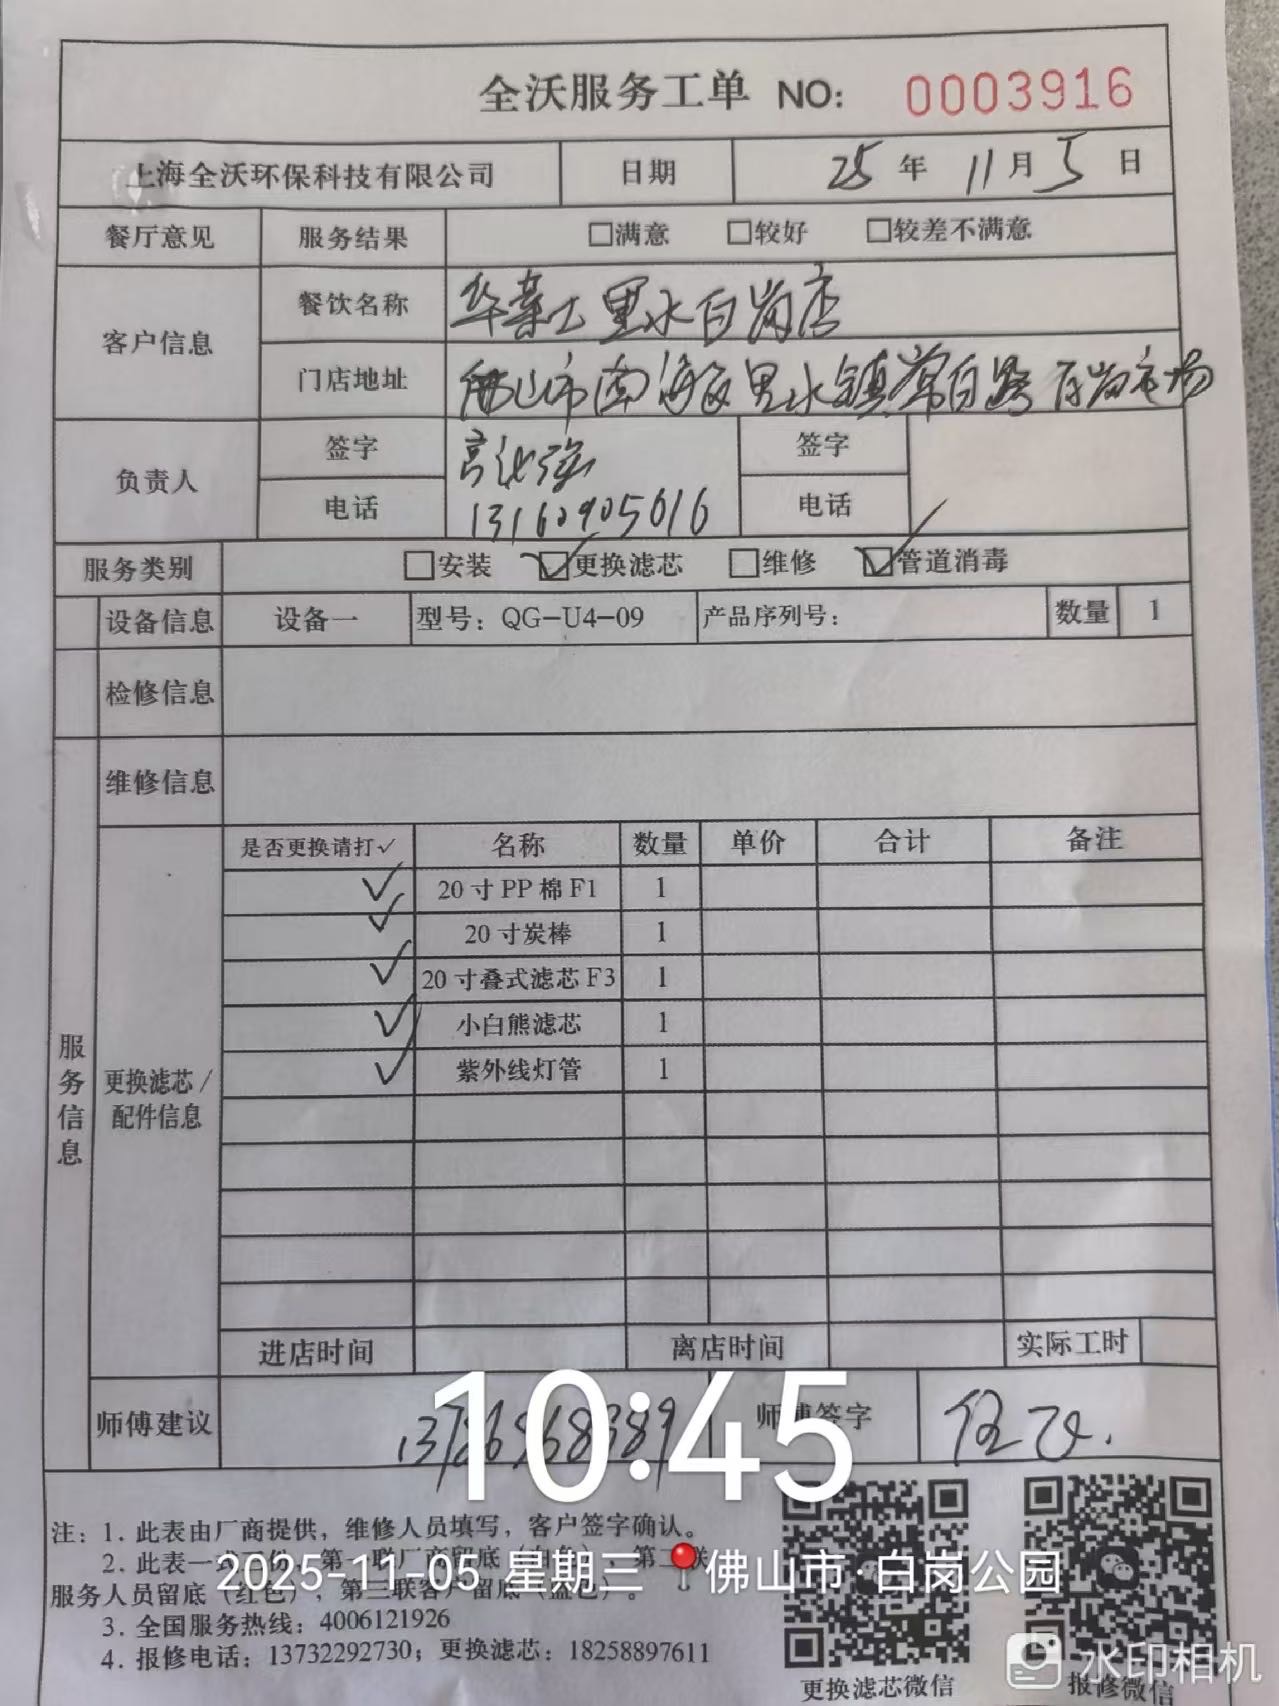 全沃服务工单 NO: 0003916
上海全沃环保科技有限公司 日期 25年11月5日
餐厅意见 服务结果 □满意 □较好 □较差不满意
客户信息 餐饮名称 华莱士里水白岗店
门店地址 佛山市南海区里水镇 白岗市场
负责人 签字 签字
电话 13160905616 电话
服务类别 □安装 ☑更换滤芯 □维修 ☑管道消毒
设备信息 设备一 型号：QG-U4-09 产品序列号： 数量 1
检修信息
维修信息
服务信息
更换滤芯/
配件信息
是否更换请打✓ 名称 数量 单价 合计 备注
✓ 20寸PP棉F1 1
✓ 20寸炭棒 1
✓ 20寸叠式滤芯F3 1
✓ 小白熊滤芯 1
✓ 紫外线灯管 1
进店时间 离店时间 实际工时
师傅建议 师傅签字
10:45
注：1. 此表由厂商提供，维修人员填写，客户签字确认。
2. 此表一式三份，第一联厂商留底（白色），第二联
服务人员留底（红色），第三联客户留底（蓝色）。
2025-11-05 星期三 佛山市·白岗公园
3. 全国服务热线：4006121926
4. 报修电话：13732292730；更换滤芯：18258897611
更换滤芯微信 报修微信
水印相机